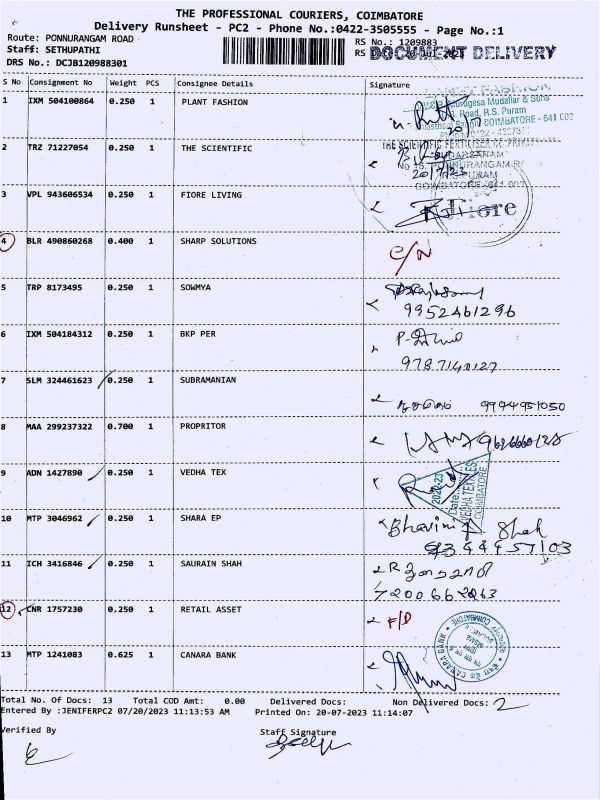 THE PROFESSIONAL COURIERS, COIMBATORE
Delivery Runsheet - PC2 - Phone No.:0422-3505555 - Page No.:1
Route: PONNURANGAM ROAD
RS No.: 1209883
Staff: SETHUPATHI
DOCUMENT DELIVERY
DRS No.: DCJB120988301
S No Consignment No Weight PCS Consignee Details Signature
1 IXM 504100864 0.250 1 PLANT FASHION
Road, R.S. Puram
COIMBATORE - 641 002
2 TRZ 71227054 0.250 1 THE SCIENTIFIC
3 VPL 943606534 0.250 1 FIORE LIVING
Fiore
4 BLR 490860268 0.400 1 SHARP SOLUTIONS
5 TRP 8173495 0.250 1 SOWMYA
9952461296
6 IXM 504184312 0.250 1 BKP PER
9787140127
7 SLM 324461623 0.250 1 SUBRAMANIAN
9994951050
8 MAA 299237322 0.700 1 PROPRITOR
9 ADN 1427890 0.250 1 VEDHA TEX
2020-23
Date:
VEDHA TEXTILES
COIMBATORE
10 MTP 3046962 0.250 1 SHARA EP
Bhavini Shah
11 ICH 3416846 0.250 1 SAURAIN SHAH
12 CNR 1757230 0.250 1 RETAIL ASSET
F/D
13 MTP 1241083 0.625 1 CANARA BANK
CANARA BANK
COIMBATORE
Total No. Of Docs: 13 Total COD Amt: 0.00 Delivered Docs: Non Delivered Docs: 2
Entered By :JENIFERPC2 07/20/2023 11:13:53 AM Printed On: 20-07-2023 11:14:07
Verified By Staff Signature